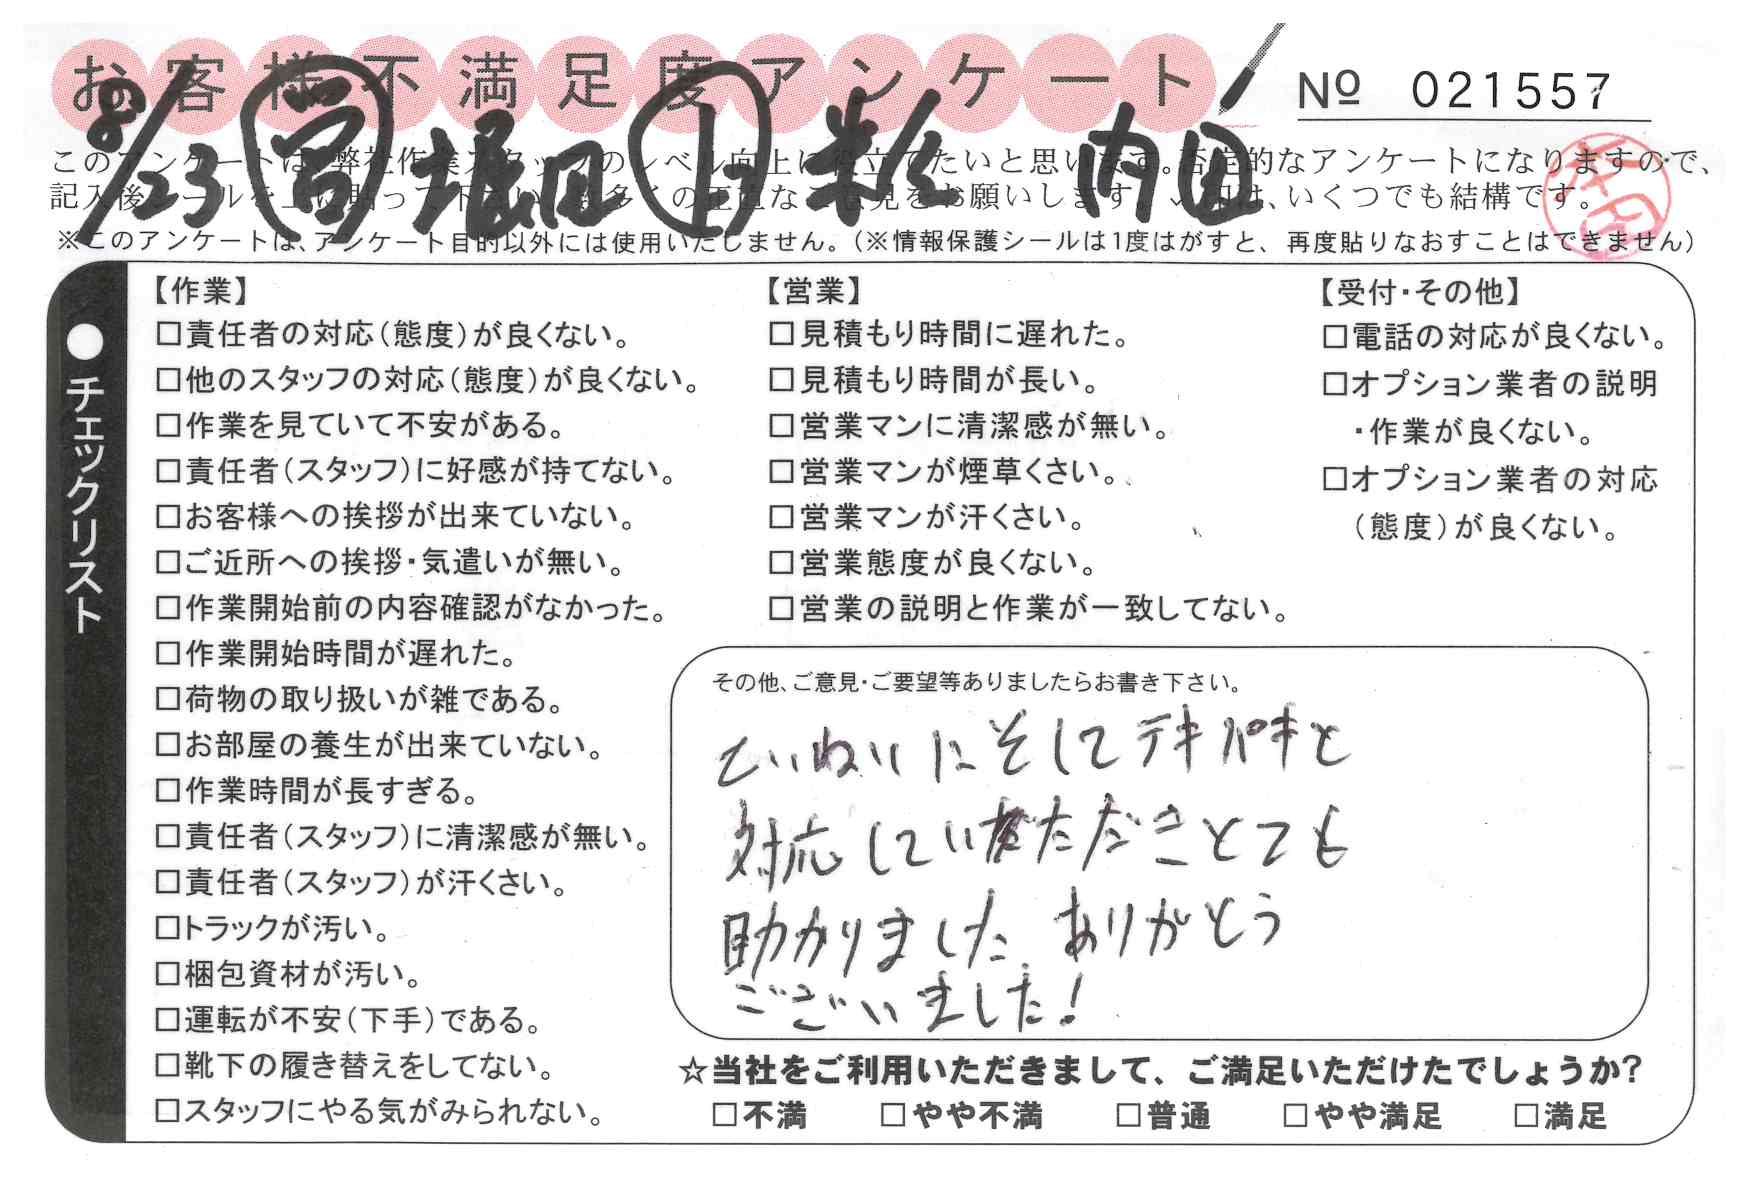 お客様不満足度アンケート
№ 021557
8/23 営 堀田 上 内田
このアンケートは、弊社作業スタッフのレベル向上に役立てたいと思います。否定的なアンケートになりますので、
記入後シールを上に貼って下さい。数多くの正直なご意見をお願いします。✓印は、いくつでも結構です。
※このアンケートは、アンケート目的以外には使用いたしません。（※情報保護シールは1度はがすと、再度貼りなおすことはできません）
●チェックリスト
【作業】
□責任者の対応（態度）が良くない。
□他のスタッフの対応（態度）が良くない。
□作業を見ていて不安がある。
□責任者（スタッフ）に好感が持てない。
□お客様への挨拶が出来ていない。
□ご近所への挨拶・気遣いが無い。
□作業開始前の内容確認がなかった。
□作業開始時間が遅れた。
□荷物の取り扱いが雑である。
□お部屋の養生が出来ていない。
□作業時間が長すぎる。
□責任者（スタッフ）に清潔感が無い。
□責任者（スタッフ）が汗くさい。
□トラックが汚い。
□梱包資材が汚い。
□運転が不安（下手）である。
□靴下の履き替えをしてない。
□スタッフにやる気がみられない。
【営業】
□見積もり時間に遅れた。
□見積もり時間が長い。
□営業マンに清潔感が無い。
□営業マンが煙草くさい。
□営業マンが汗くさい。
□営業態度が良くない。
□営業の説明と作業が一致してない。
【受付・その他】
□電話の対応が良くない。
□オプション業者の説明
・作業が良くない。
□オプション業者の対応
（態度）が良くない。
その他、ご意見・ご要望等ありましたらお書き下さい。
ていねいにそしてテキパキと
対応していただきとても
助かりました。ありがとう
ございました！
☆当社をご利用いただきまして、ご満足いただけたでしょうか？
□不満 □やや不満 □普通 □やや満足 □満足